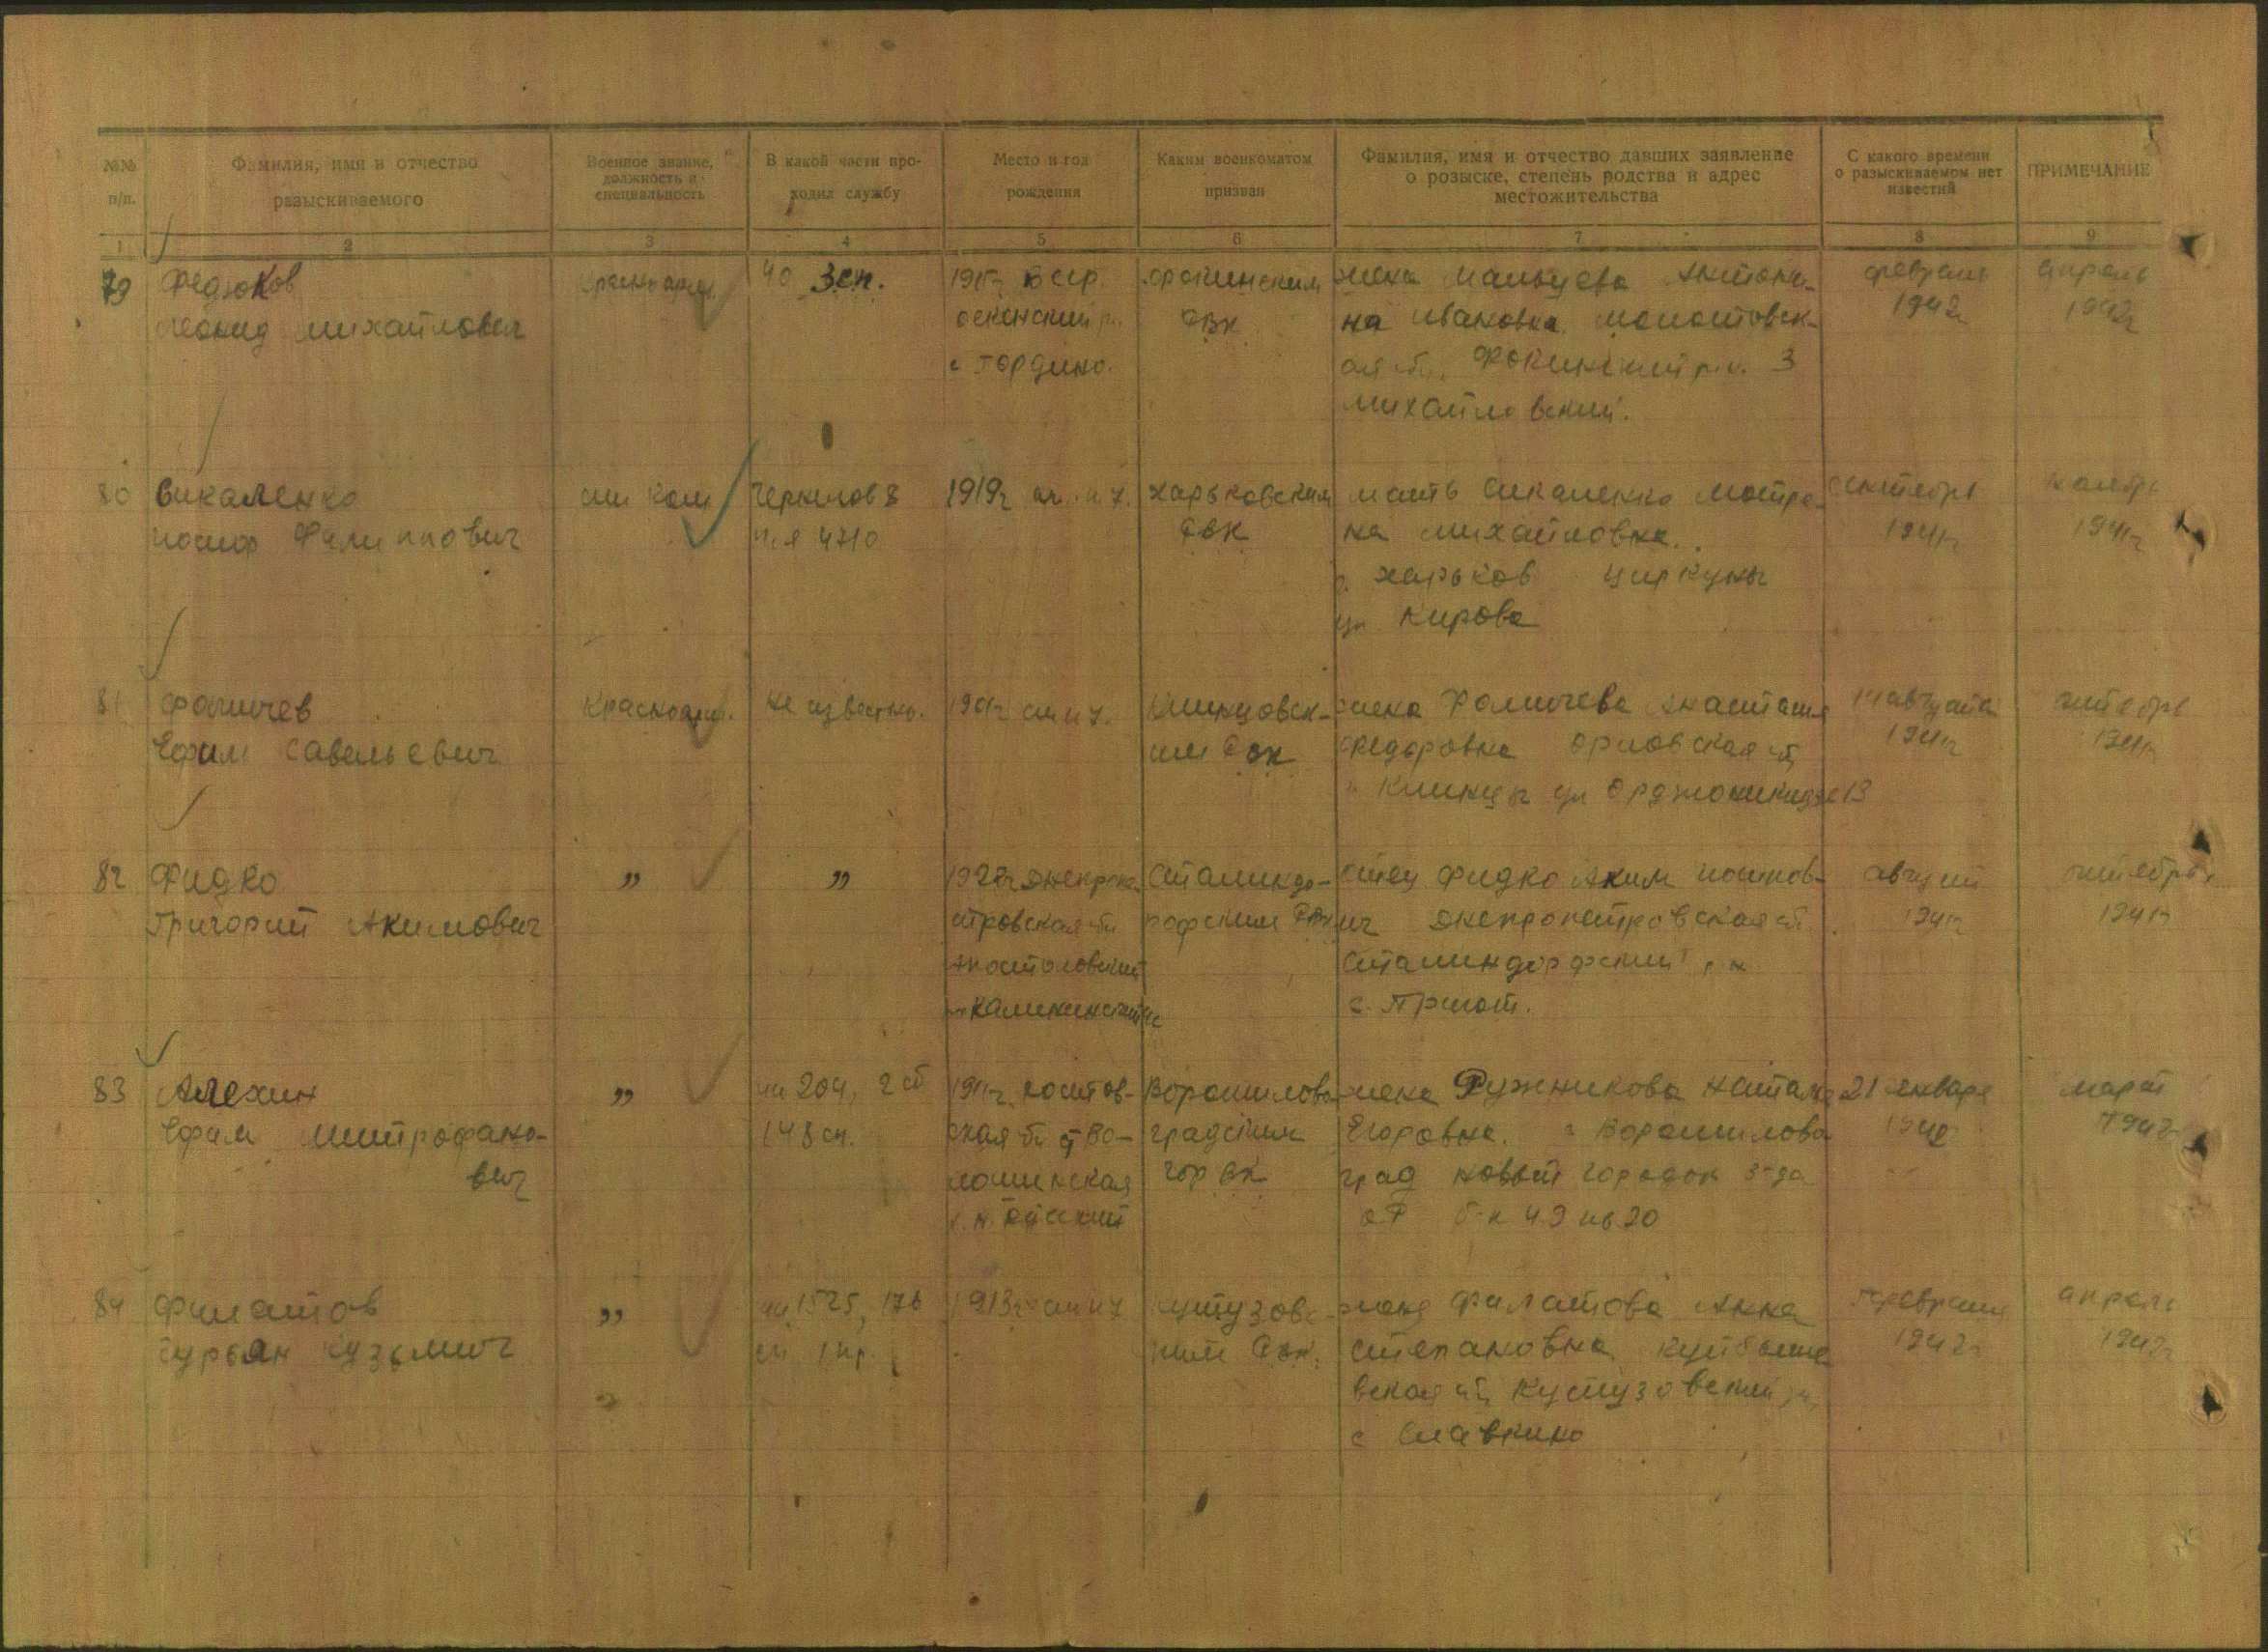 №№ п/п.
Фамилия, имя и отчество разыскиваемого
Военное звание, должность и специальность
В какой части проходил службу
Место и год рождения
Каким военкоматом призван
Фамилия, имя и отчество давших заявление о розыске, степень родства и адрес местожительства
С какого времени о разыскиваемом нет известий
ПРИМЕЧАНИЕ
1 2 3 4 5 6 7 8 9
79 Федюков
Леонид Михайлович
40 Зсп.
с Гордино.
РВК
жена Мальцева Антони-
на Ивановна Молотовск-
ая об. Фокинский р.н. 3
Михайловский.
февраль
1942г
апрель
1942г
80 Сикаленко
Иосиф Филиппович
мл ком
п.я 4710
1919г
Харьковским
РВК
мать Сикаленко Мотре-
на Михайловна.
г. Харьков Циркуны
ул Кирова
сентябрь
1941г
ноябрь
1941г
81 Фомичев
Ефим Савельевич
Красноарм.
Не известно.
1901г см п 7.
Клинцовск-
им РВК
жена Фомичева Анастасия
Федоровна Орловская об
г Клинцы ул Орджоникидзе 13
августа
1941г
октябрь
1941г
82 Фидко
Григорий Акимович
"
"
Днепропе-
тровская об
Апостоловский
Сталиндо-
рфским РВК
отец Фидко Аким
ич Днепропетровская об
Сталиндорфский р н
с. Приют.
август
1941г
октябрь
1941г
83 Алехин
Ефим Митрофано-
вич
"
пп 204, 2 сб
148 сп.
1911г. Ростов-
ская об ст Во-
лошинская
Ворошилово-
градским
гор ВК
жена Ружникова Наталия
Егоровна. г Ворошилова
град новый городок з-да
ОР б-к 49 кв 20
21 января
1942
март
1942
84 Филатов
Гурьян Кузьмич
"
пп 1525, 176
сп 1 пр.
1913г см п 7
Кутузовс-
ким РВК.
жена Филатова Анна
Степановна Куйбыше
вская об, Кутузовский рн,
с Славкино
февраля
1942г
апрель
1942г